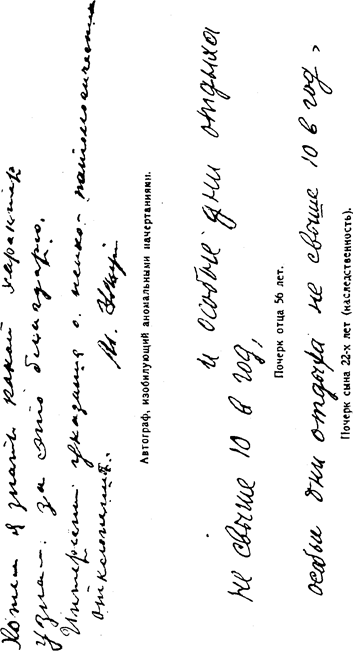 Хотел я знать какой характер
Узнал: за это благодарю.
Интересны указания о психо-патологических
отклонениях.
Вл.
Автограф, изобилующий аномальными начертаниями.
и особые дни отдыха
не свыше 10 в год,
Почерк отца 56 лет.
особые дни отдыха не свыше 10 в год,
Почерк сына 22-х лет (наследственность).